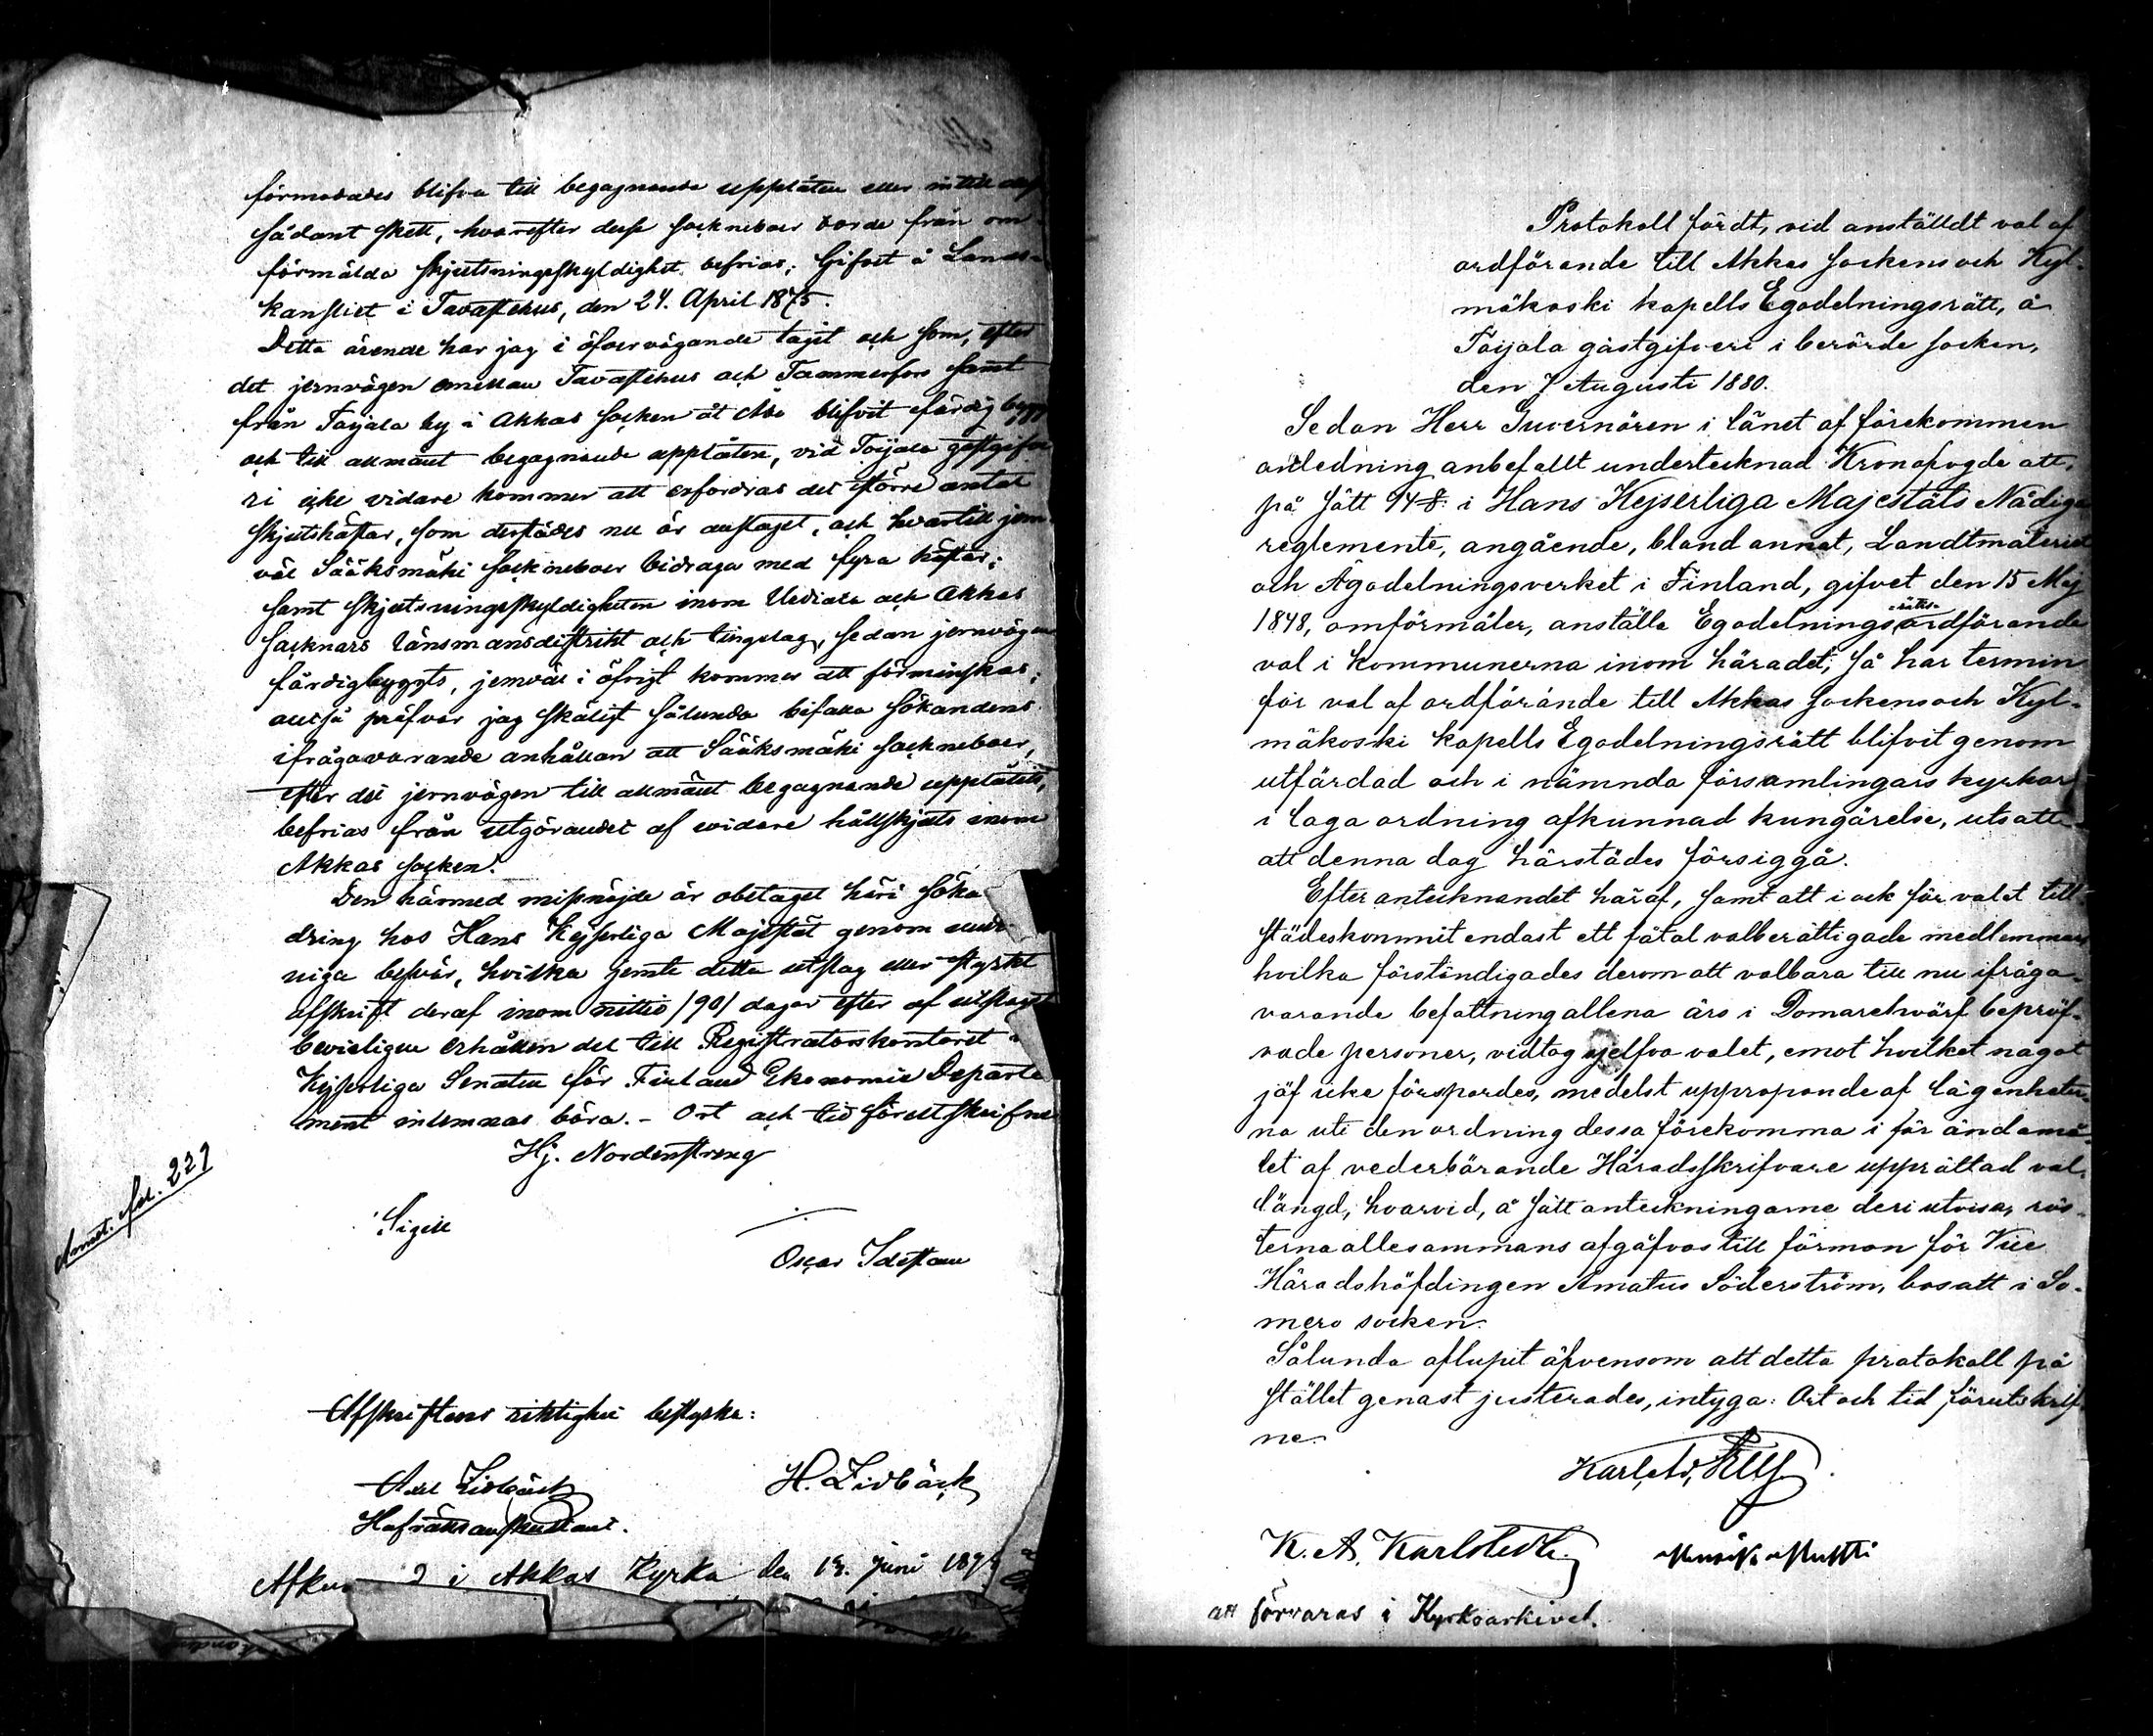 förmodades blifva till begagnande upplåten eller intill dess
sådant skett, hvarefter desse sockneboer borde från om-
förmälda skjutsningsskyldighet befrias; Gifvet å Lands-
kansliet i Tavastehus, den 24. April 1875.
Detta ärende har jag i öfvervägande tagit och som, efter
det jernvägen emellan Tavastehus och Tammerfors samt
från Toijala by i Akkas socken åt Åbo blifvit färdig bygg
och till allmänt begagnande upplåten, vid Toijala gästgifve
ri icke vidare kommer att erfordras det större antal
skjutshästar, som derstädes nu är anstaget, och hvartill jem
väl Sääksmäki sockneboer bidraga med fyra hästar;
samt skjutsningsskyldigheten inom Urdiala och Akkas
socknars länsmansdistrikt och tingslag, sedan jernvägen
färdigbyggts, jemväl i öfrigt kommer att förminskas;
alltså pröfvar jag skäligt sålunda bifalla sökandens
ifrågavarande anhållan att Sääksmäki sockneboer,
efter det jernvägen till allmänt begagnande upplåtits,
befrias från utgörandet af vidare hållskjuts inom
Akkas socken.
Den härmed missnöjde är obetaget häri söka
dring hos Hans Kejserliga Majestät genom under
niga besvär, hvilka jemte detta utslag eller styrkt
afskrift deraf inom nittio /90/ dagar efter af utslaget
bevisligen erhållen del till Registratorskontoret i
Kejserliga Senaten för Finland Ekonomie Departe
ment inlemnas böra. - Ort och tid förutskrifne
Hj. Nordenstreng
Sigill
Oscar Idestam
Annot. fol. 229
Afskriftens riktighet bestyrka:
Axel Lidbäck H. Lidbäck
Hofrättsauskultant.
Afkun d i Akkas Kyrka den 13. Juni 187
Protokoll fördt, vid anställdt val af
ordförande till Akkas sockens och Kyl-
mäkoski kapells Egodelningsrätt, å
Toijala gästgifveri i berörde socken,
den 7 Augusti 1880.
Sedan Herr Guvernören i länet af förekommen
anledning anbefallt undertecknad Kronofogde att,
på sätt 94 §. i Hans Kejserliga Majestäts Nådiga
reglemente, angående, bland annat, Landtmäteriet
och Ägodelningsverket i Finland, gifvet den 15 Maj
1848, omförmäler, anställa Egodelningsrätts-ordförande
val i kommunerna inom häradet; så har termin
för val af ordförande till Akkas sockens och Kyl-
mäkoski kapells Egodelningsrätt blifvit genom
utfärdad och i nämnda församlingars kyrkor
i laga ordning afkunnad kungörelse, utsatt
att denna dag härstädes försiggå.
Efter antecknandet häraf, samt att i ock för valet till-
städeskommit endast ett fåtal valberättigade medlemmar
hvilka förständigades derom att valbara till nu ifråga-
varande befattning allena äro i Domarehvärf bepröf-
vade personer, vidtog sjelfva valet, emot hvilket något
jäf icke förspordes, medelst uppropande af lägenheter-
na uti den ordning dessa förekomma i för ändamå-
let af vederbörande Häradsskrifvare upprättad val-
längd, hvarvid, å sätt anteckningarne deri utvisa, rös-
terna allesammans afgåfvos till förmon för Vice
Häradshöfdingen Amatus Söderström, bosatt i So-
mero socken.
Sålunda aflupit äfvensom att detta protokoll på
stället genast justerades, intyga: Ort och tid förutskrif-
ne.
K. A. Karlstedt
att förvaras i Kyrkoarkivet.